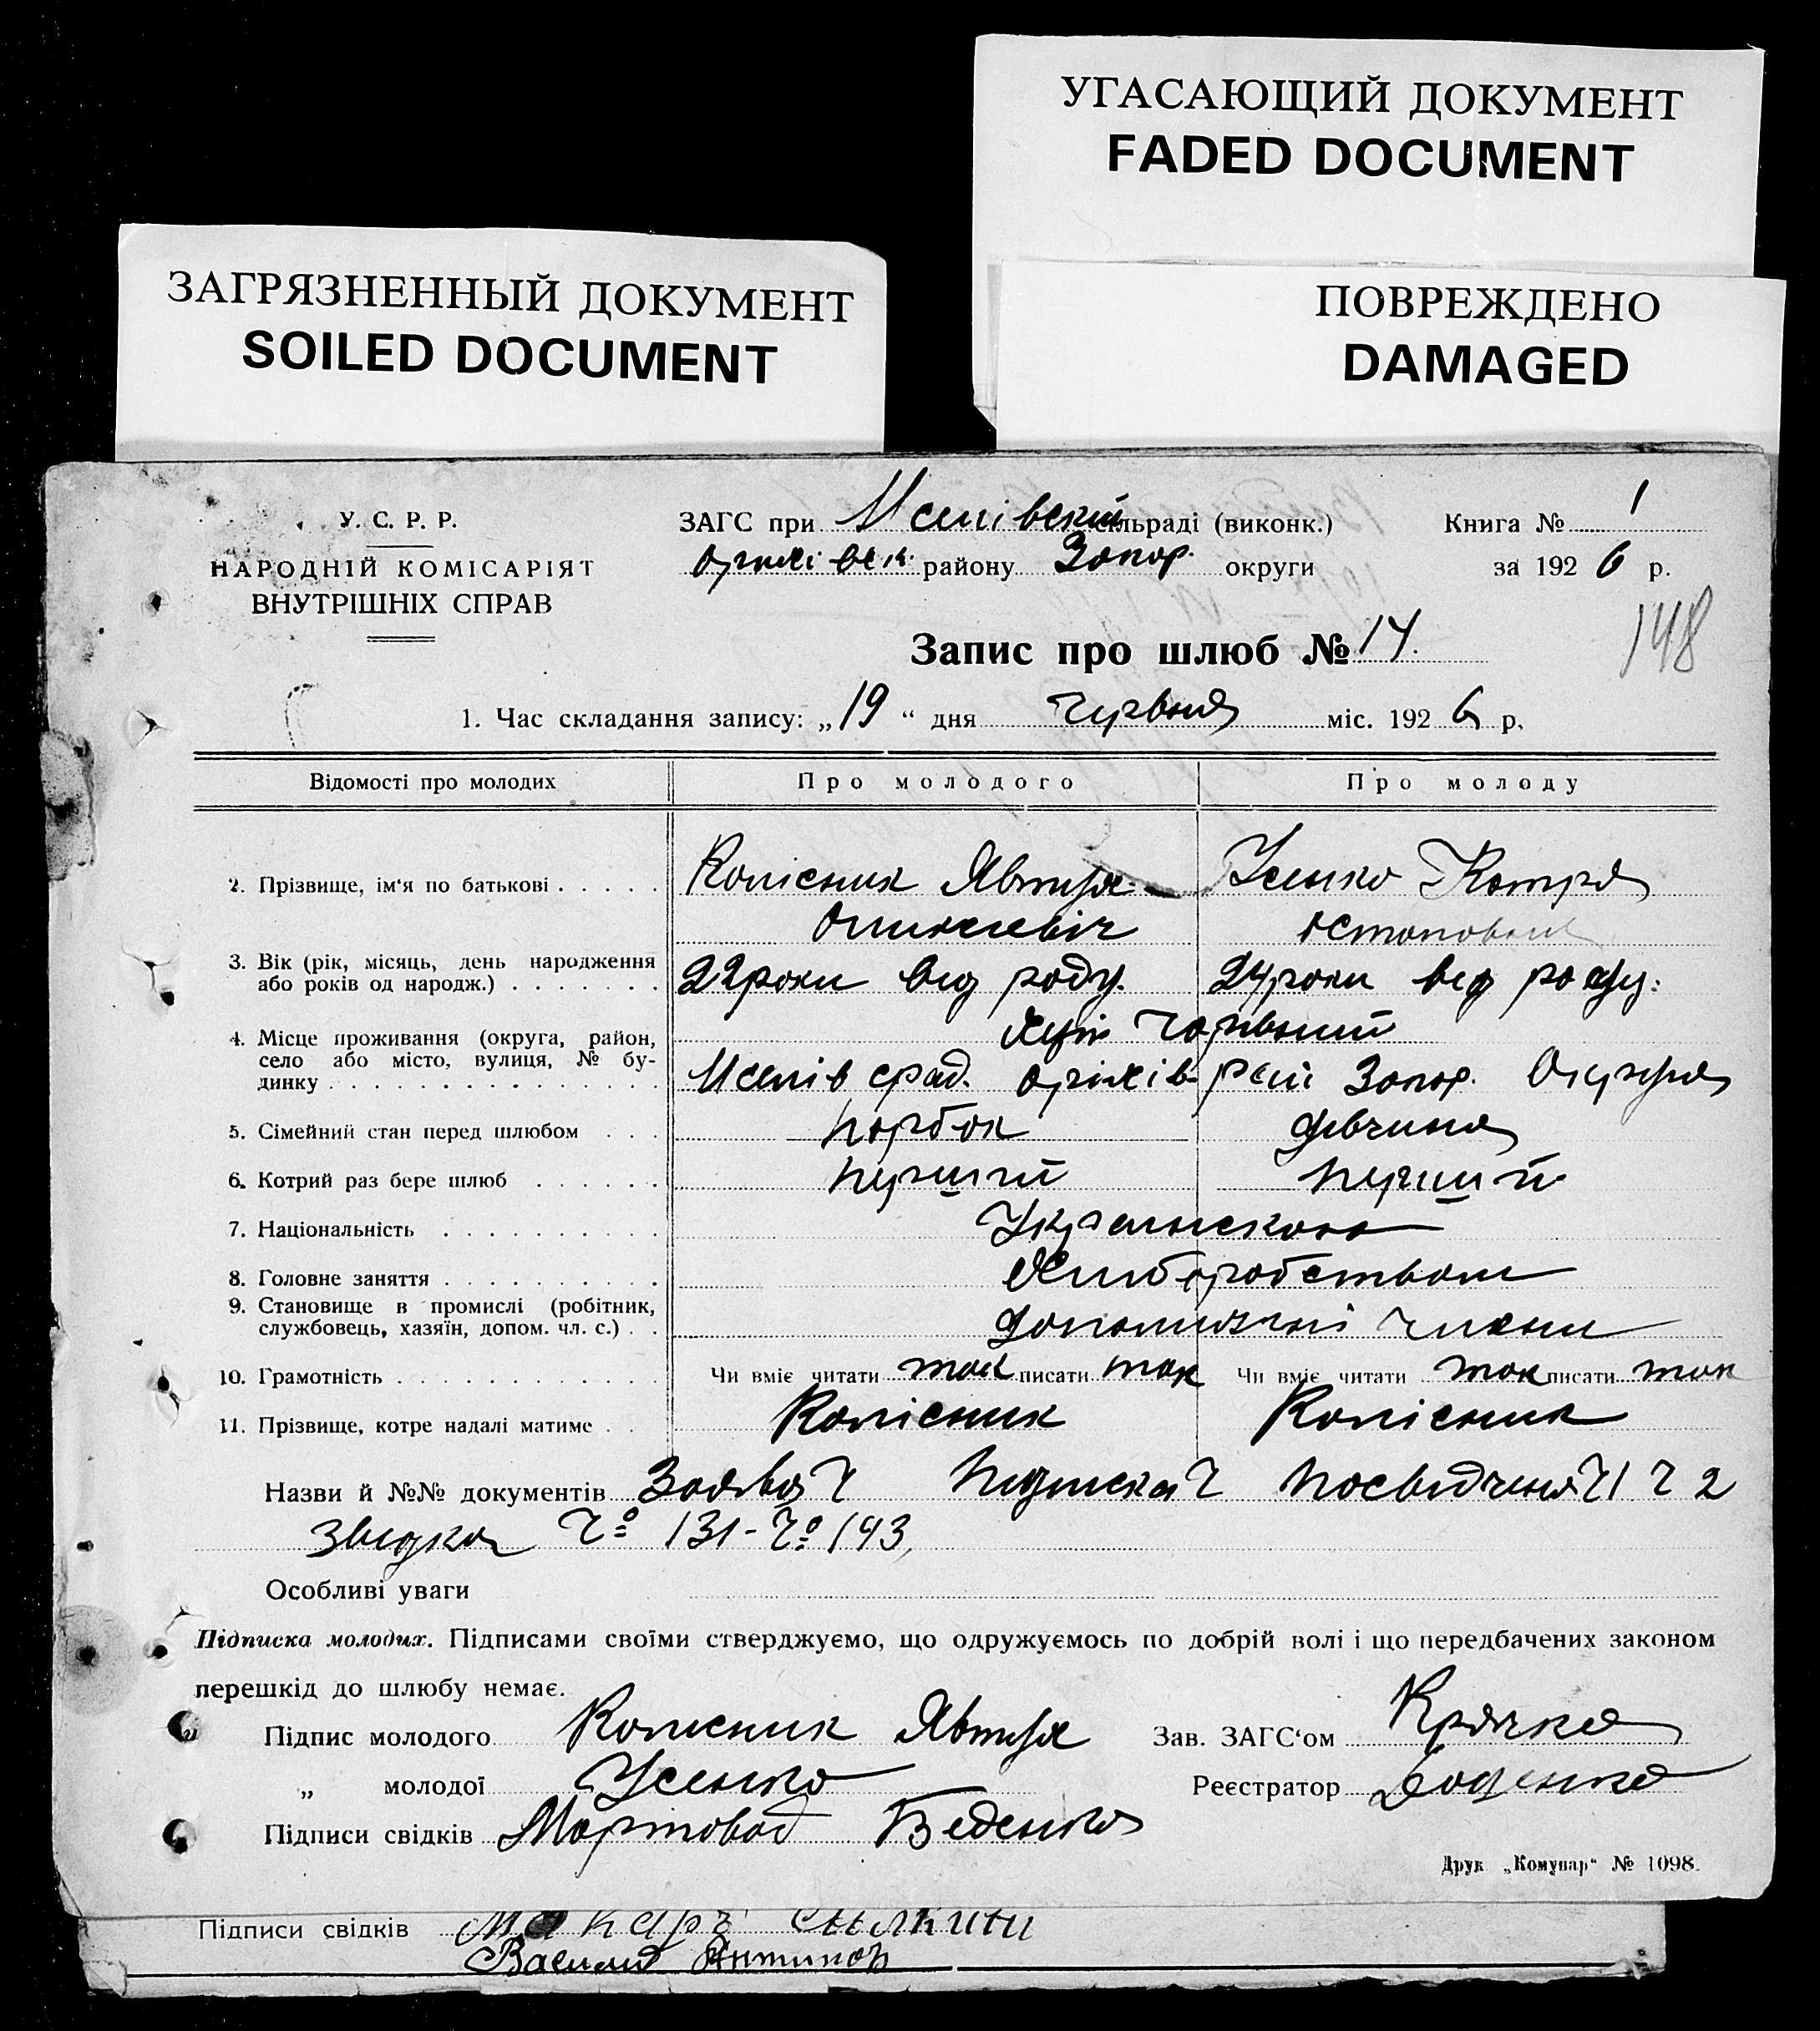 УГАСАЮЩИЙ ДОКУМЕНТ
FADED DOCUMENT
ЗАГРЯЗНЕННЫЙ ДОКУМЕНТ
SOILED DOCUMENT
ПОВРЕЖДЕНО
DAMAGED
У. С. Р. Р.
НАРОДНІЙ КОМІСАРІЯТ
ВНУТРІШНІХ СПРАВ
ЗАГС при сільраді (виконк.)
району Запор. округи
Книга № 1
за 1926 р.
148
Запис про шлюб № 14.
1. Час складання запису: „19“ дня червня міс. 1926 р.
Відомості про молодих Про молодого Про молоду
2. Прізвище, ім'я по батькові . . . . . Колісник Явтух Усенко Катря
Остаповна
3. Вік (рік, місяць, день народження
або років од народж.) . . . . . . . 22 роки від роду. 24 роки від роду.
4. Місце проживання (округа, район,
село або місто, вулиця, № бу-
динку . . . . . . . . . . . . . . . . Оріхів рай Запор. Округа
5. Сімейний стан перед шлюбом . . . парубок дівчина
6. Котрий раз бере шлюб . . . . . . перший перший
7. Національність . . . . . . . . . . Українською
8. Головне заняття . . . . . . . . . . Хліборобством
9. Становище в промислі (робітник,
службовець, хазяїн, допом. чл. с.) . . допомижні члени
10. Грамотність . . . . . . . . . . . . Чи вміє читати так писати так Чи вміє читати так писати так
11. Прізвище, котре надалі матиме . . Колісник Колісник
Назви й №№ документів Заява Ч Підписка Ч Посвідченя Ч 1 Ч 2
Звідка Ч° 131 - Ч° 143,
Особливі уваги
Підписка молодих. Підписами своїми стверджуємо, що одружуємось по добрій волі і що передбачених законом
перешкід до шлюбу немає.
Підпис молодого Колисник Явтух Зав. ЗАГС'ом Крячко
„ молодої Усенко Реєстратор
Підписи свідків Мартовод Беденко
Друк „Комунар“ № 1098.
Підписи свідків Макаръ
Василий Антипов